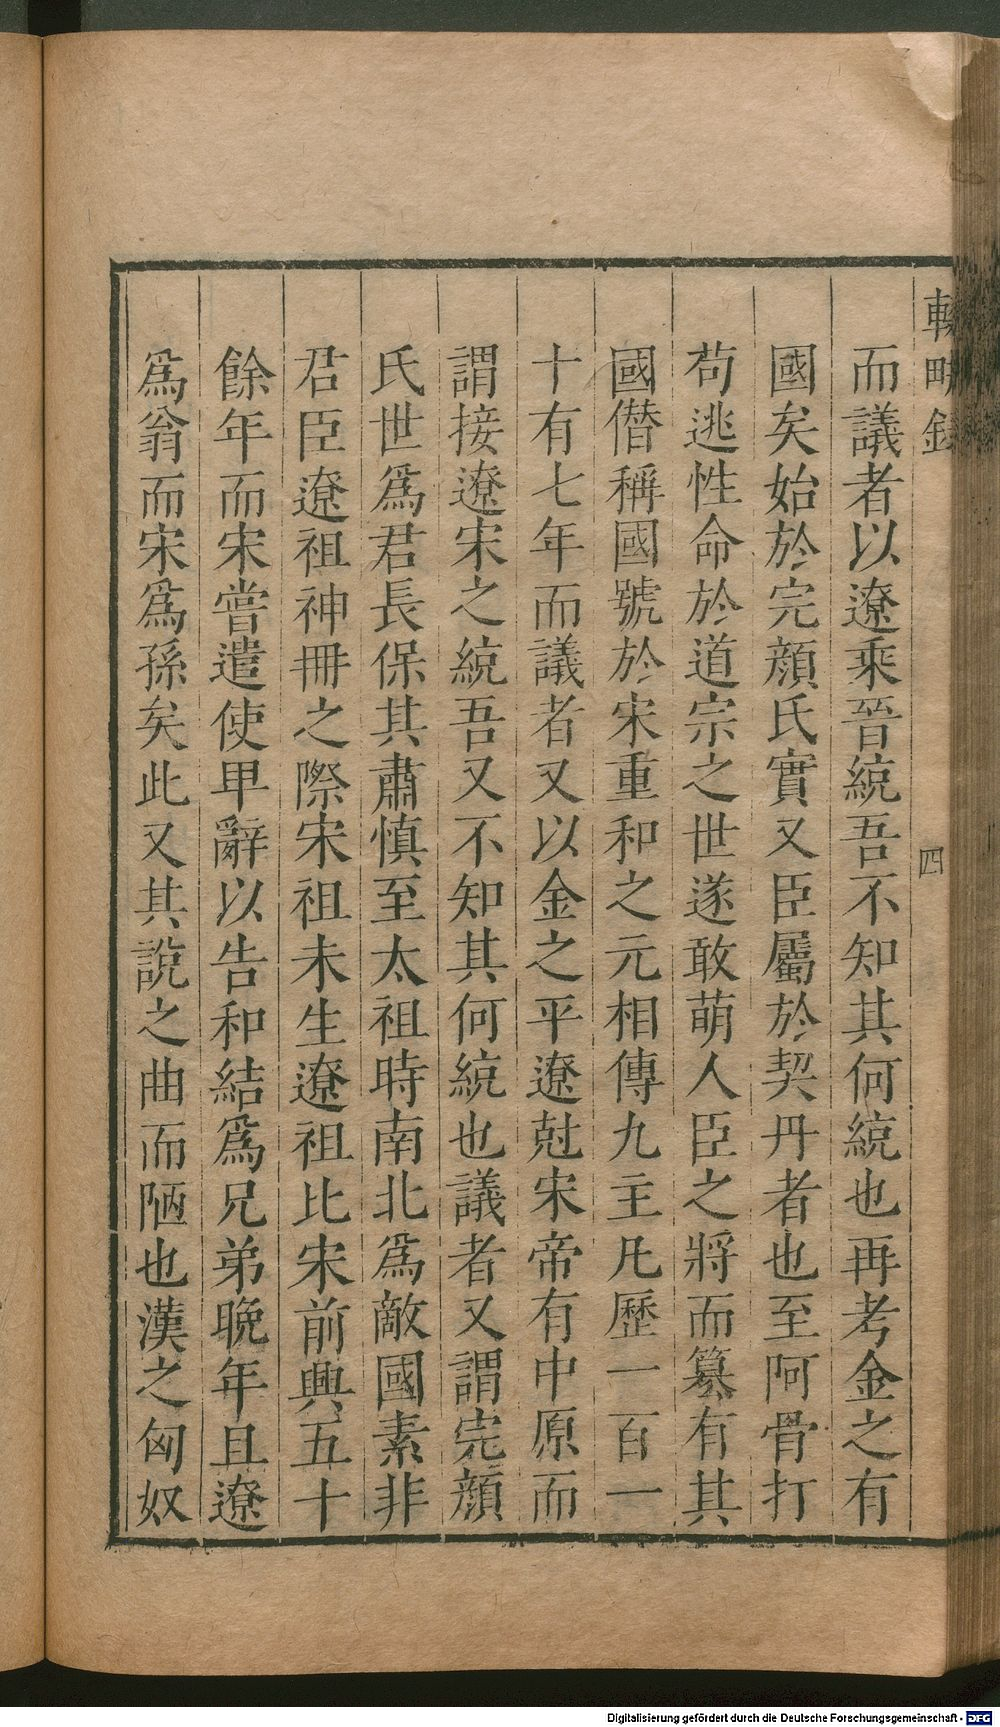 輟畊錄
四
而議者以遼乘晉統吾不知其何統也再考金之有
國矣始於完顏氏實又臣屬於契丹者也至阿骨打
苟逃性命於道宗之世遂敢萌人臣之將而簒有其
國僣稱國號於宋重和之元相傳九主凡歷一百一
十有七年而議者又以金之平遼尅宋帝有中原而
謂接遼宋之統吾又不知其何統也議者又謂完顏
氏世爲君長保其肅慎至太祖時南北爲敵國素非
君臣遼祖神冊之際宋祖未生遼祖比宋前興五十
餘年而宋嘗遣使甲辭以告和結爲兄弟晚年且遼
爲翁而宋爲孫矣此又其說之曲而陋也漢之匈奴
Digitalisierung gefördert durch die Deutsche Forschungsgemeinschaft - DFG